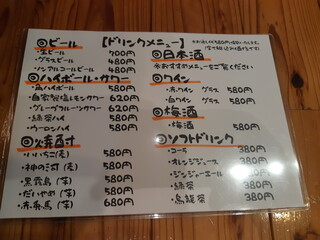 【ドリンクメニュー】
◎ビール
・生ビール 700円
・グラスビール 480円
・ノンアルコールビール 480円
◎ハイボール・サワー
・角ハイボール 580円
・自家製塩レモンサワー 620円
・グレープフルーツサワー 620円
・緑茶ハイ 580円
・ウーロンハイ 580円
◎焼酎
・いいちこ(麦) 580円
・神の河(麦) 580円
・黒霧島(芋) 580円
・だいやめ(芋) 580円
・赤兎馬(芋) 680円
◎日本酒
※おすすめメニューをご覧ください
◎ワイン
・赤ワイン グラス 580円
・白ワイン グラス 580円
◎梅酒
・梅酒 580円
◎ソフトドリンク
・コーラ 380円
・オレンジジュース 380円
・ジンジャーエール 380円
・緑茶 380円
・烏龍茶 380円